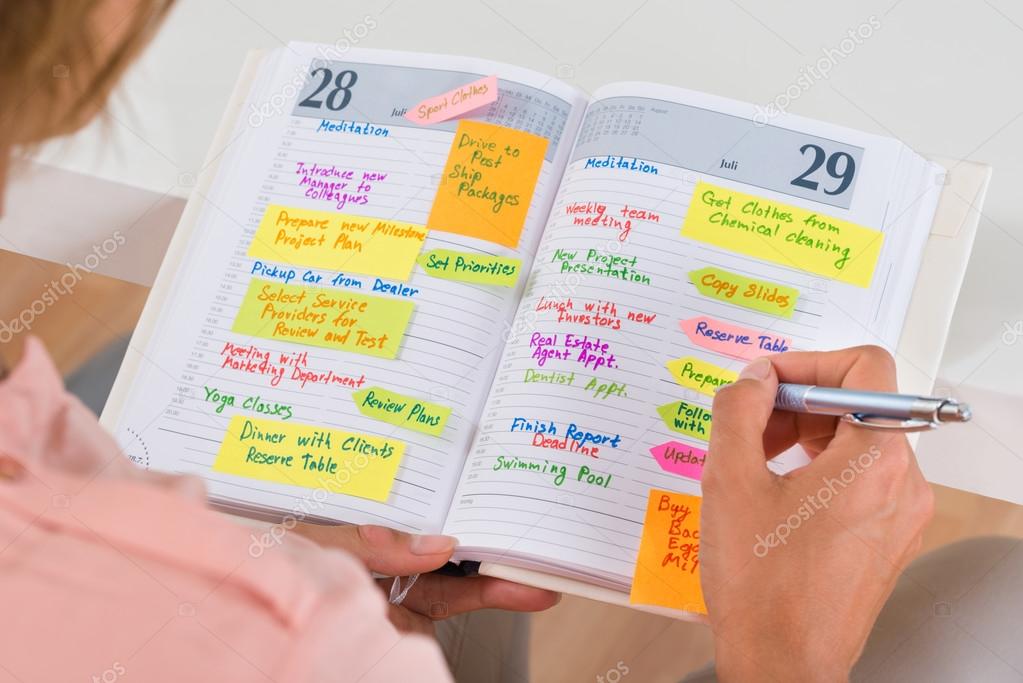 28
Juli
Sport Clothes
Meditation
Drive to
Post
Ship
Packages
Introduce new
Manager to
Colleagues
Prepare new Milestone
Project Plan
Set Priorities
Pickup Car from Dealer
Select Service
Providers for
Review and Test
Meeting with
Marketing Department
Review Plans
Yoga Classes
Dinner with Clients
Reserve Table
August
Juli
29
Meditation
Get Clothes from
Chemical cleaning
Weekly team
meeting
New Project
Presentation
Copy Slides
Lunch with new
Investors
Reserve Table
Real Estate
Agent Appt.
Prepare
Dentist Appt.
Follo
with
Finish Report
Deadline
Updat
Swimming Pool
Buy
Bac
Egg
Mil
depositphotos